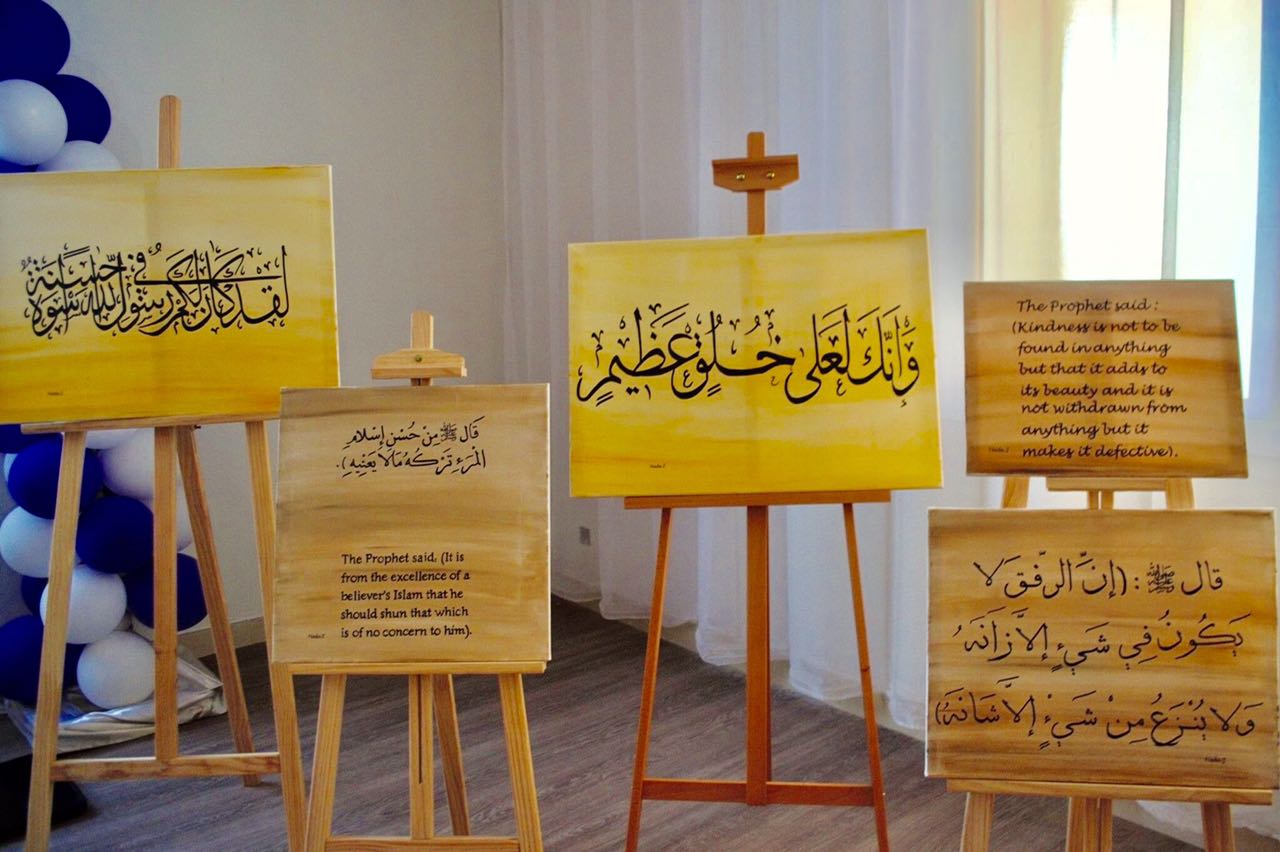 لقد كان لكم في رسول الله أسوة حسنة
Nadia Z
قال ﷺ مِنْ حُسْنِ إِسْلَامِ
المَرْءِ تَرْكُهُ مَالَا يَعْنِيهِ).
The Prophet said, (It is
from the excellence of a
believer's Islam that he
should shun that which
is of no concern to him).
Nadia Z
وَإِنَّكَ لَعَلَى خُلُقٍ عَظِيمٍ
Nadia Z
The Prophet said :
(Kindness is not to be
found in anything
but that it adds to
its beauty and it is
not withdrawn from
anything but it
makes it defective).
Nadia Z
قال ﷺ : (إنَّ الرِّفقَ لَا
يَكُونُ فِي شَيءٍ إلاَّ زَانَهُ
وَلا يُنْزَعُ مِنْ شَيءٍ إلاَّ شَانَهُ)
Nadia Z